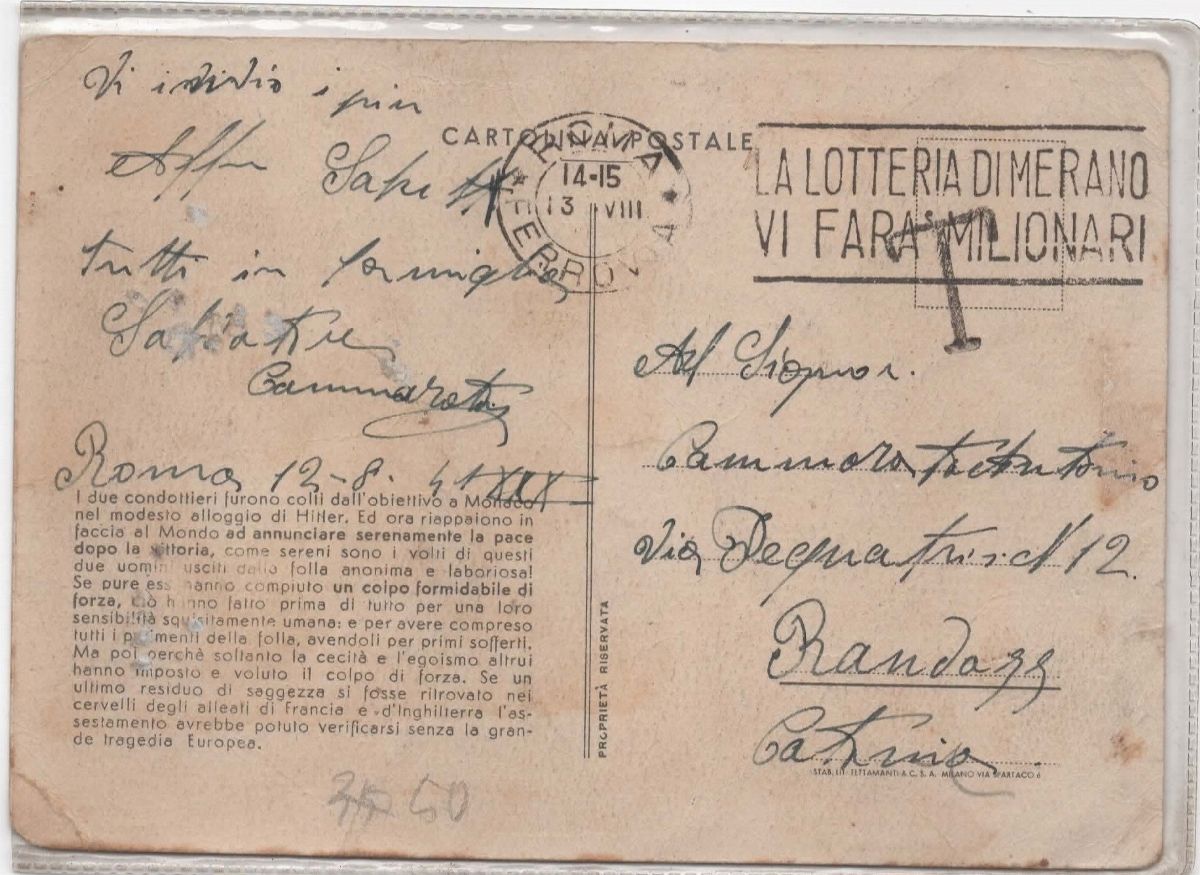 Vi invio i più
Aff. Saluti
tutti in famiglia
Salvatore
Cammarata
Roma 12-8. 41 XIX
I due condottieri furono colti dall'obiettivo a Monaco
nel modesto alloggio di Hitler. Ed ora riappaiono in
faccia al Mondo ad annunciare serenamente la pace
dopo la vittoria, come sereni sono i volti di questi
due uomini usciti dalla folla anonima e laboriosa!
Se pure essi hanno compiuto un colpo formidabile di
forza, ciò hanno fatto prima di tutto per una loro
sensibilità squisitamente umana: e per avere compreso
tutti i patimenti della folla, avendoli per primi sofferti.
Ma poi perchè soltanto la cecità e l'egoismo altrui
hanno imposto e voluto il colpo di forza. Se un
ultimo residuo di saggezza si fosse ritrovato nei
cervelli degli alleati di Francia e d'Inghilterra l'as-
sestamento avrebbe potuto verificarsi senza la gran-
de tragedia Europea.
50
CARTOLINA POSTALE
ROMA
14-15
13 VIII
FERROVIA
LA LOTTERIA DI MERANO
VI FARA' MILIONARI
T
Al Signor.
Cammarata Antonio
Via N 12.
Randazzo
Catania
PROPRIETÀ RISERVATA
STAB. LIT. TETTAMANTI A C. S. A. MILANO VIA SPARTACO 6